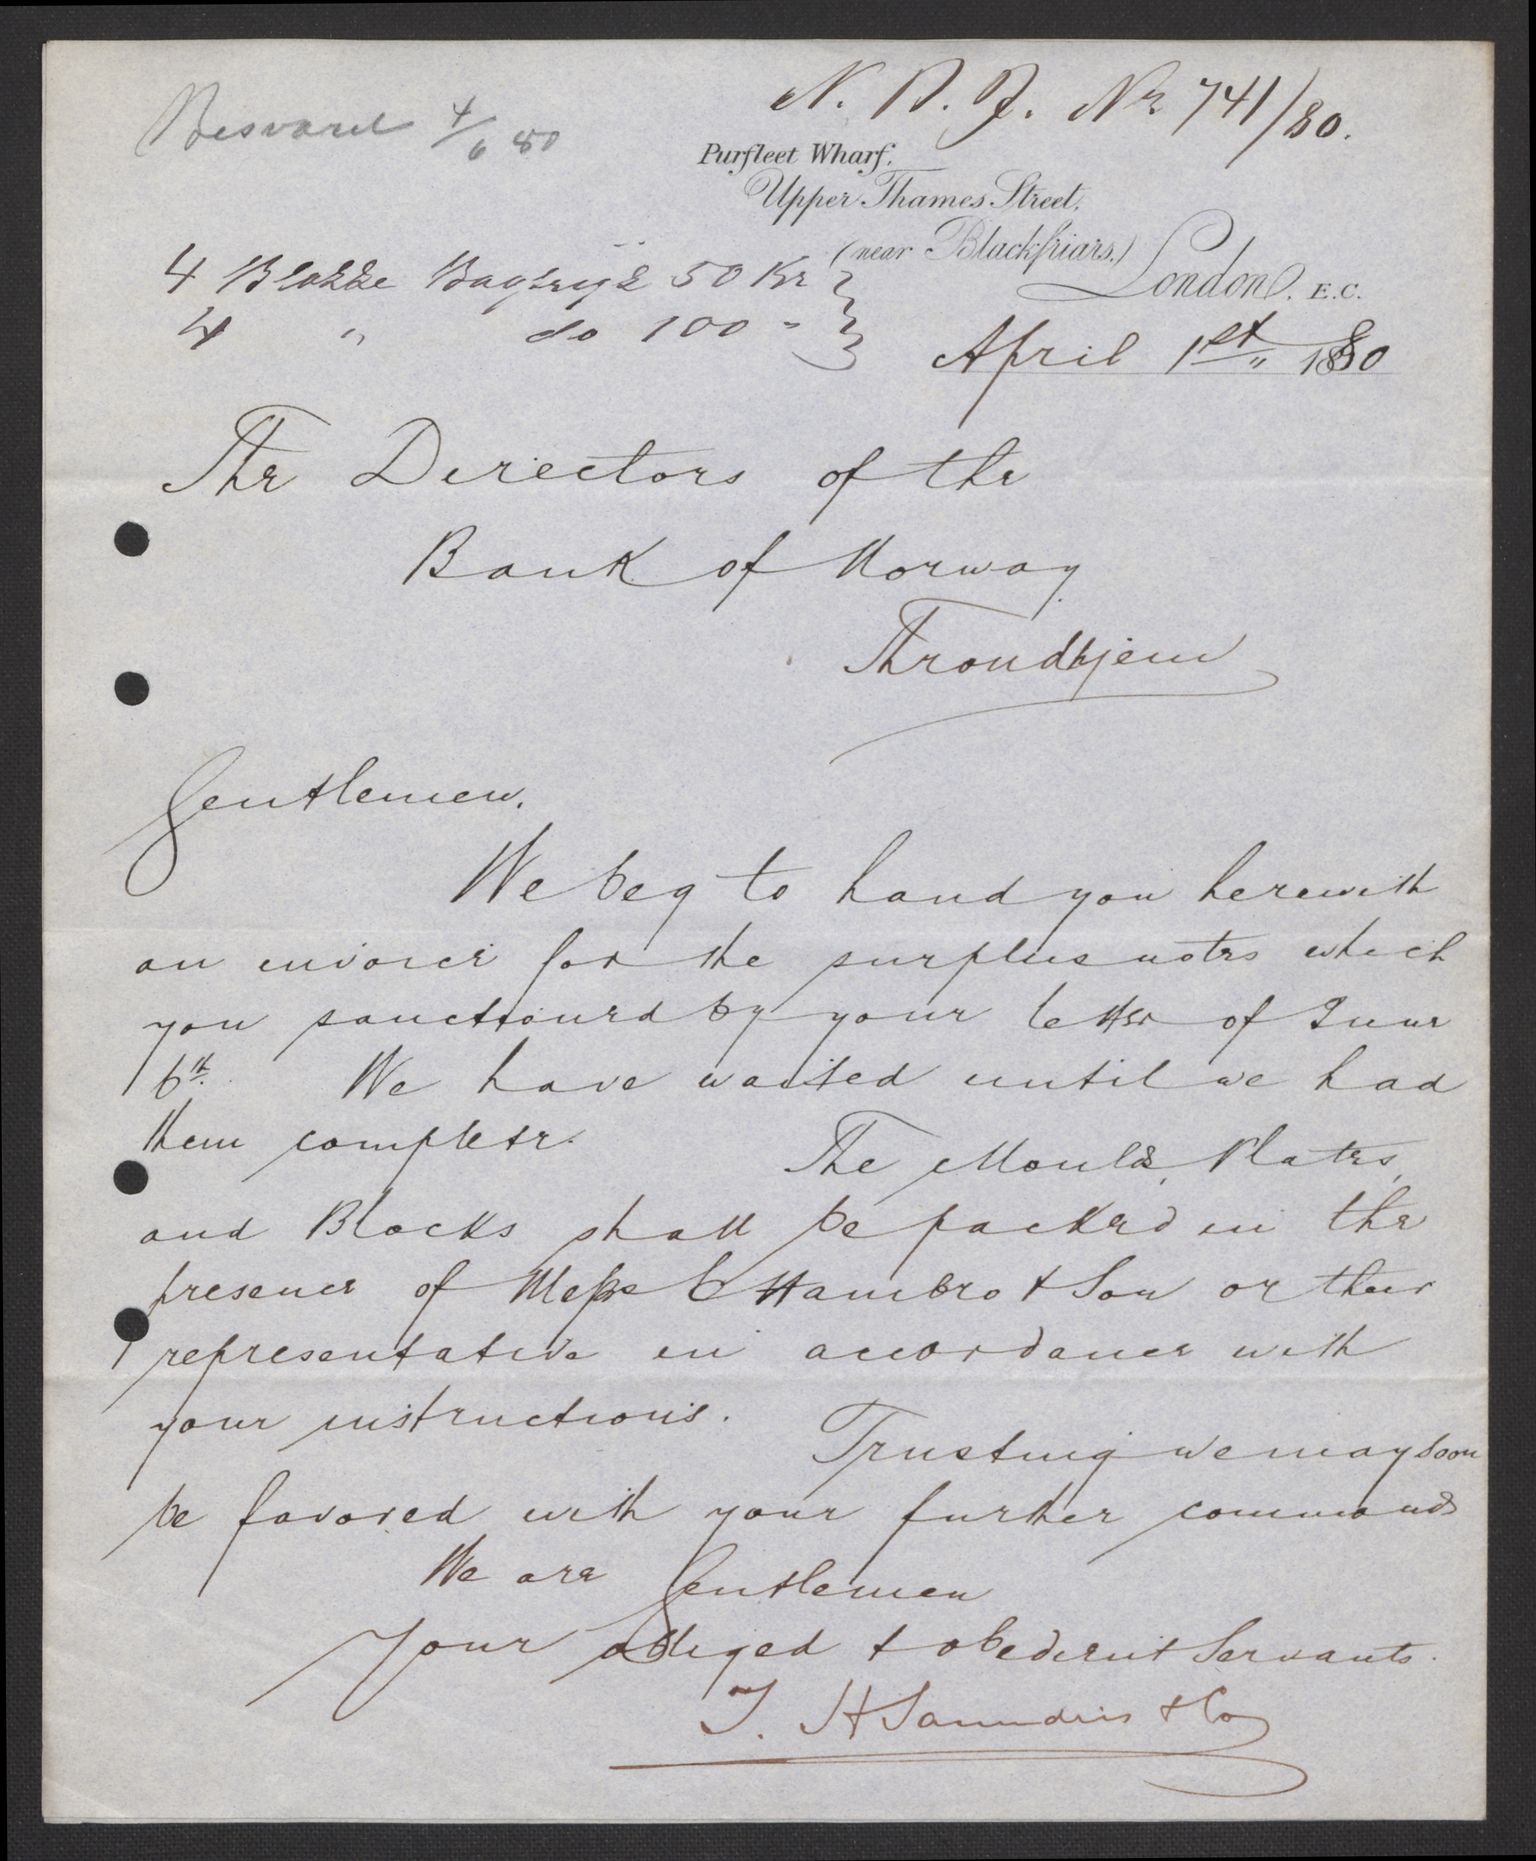 Besvaret 4/6 80
N. B. J. Nr. 741/80.
Purfleet Wharf.
Upper Thames Street.
(near Blackfriars.)
London. E.C.
4 Blokke Bagtryk 50 Kr
4 " do 100 "
April 1st 1880
The Directors of the
Bank of Norway
Throndhjem
Gentlemen.
We beg to hand you herewith
an invoice for the surplus notes which
you sanctioned by your letter of June
6th. We have waited until we had
them complete.
The Moulds, Plates,
and Blocks shall be packed in the
presence of Messrs C Hambro & Son or their
representative in accordance with
your instructions.
Trusting we may soon
be favored with your further commands
We are Gentlemen
Your obliged & obedient Servants.
T. H Saunders & Co